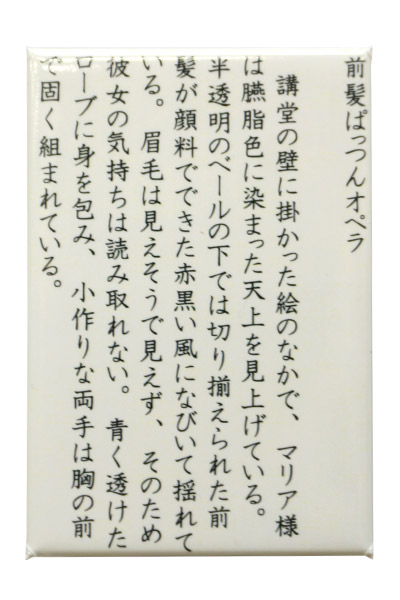 前髪ぱっつんオペラ
講堂の壁に掛かった絵のなかで、マリア様
は臙脂色に染まった天上を見上げている。
半透明のベールの下では切り揃えられた前
髪が顔料でできた赤黒い風になびいて揺れて
いる。眉毛は見えそうで見えず、そのため
彼女の気持ちは読み取れない。青く透けた
ローブに身を包み、小作りな両手は胸の前
で固く組まれている。